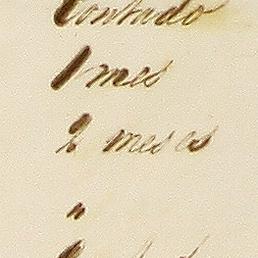 Contado
1 mes
2 meses
"